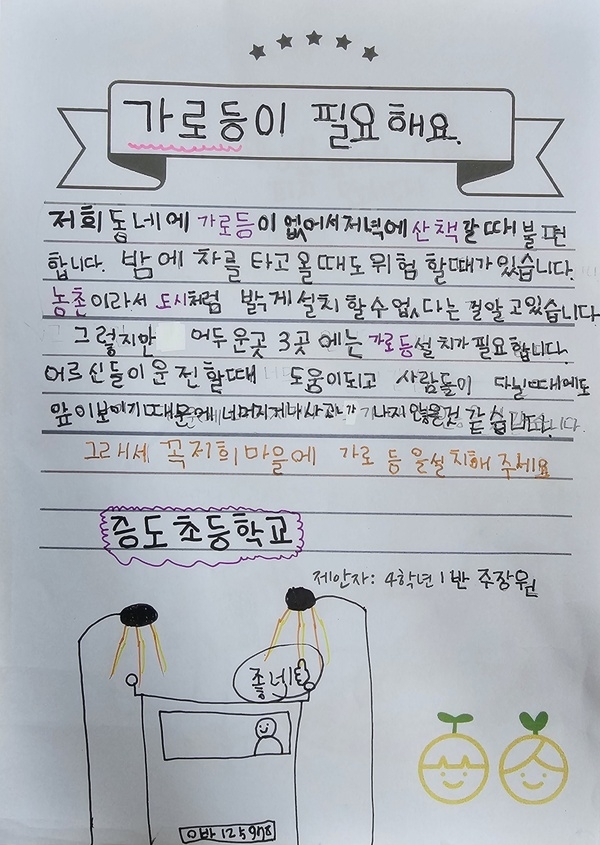 가로등이 필요해요.
저희 동네에 가로등이 없어서 저녁에 산책 갈 때 불편
합니다. 밤에 차를 타고 올 때도 위험 할때가 있습니다.
농촌이라서 도시처럼 밝게 설치 할 수 없다는 걸 알고 있습니다
그렇지만 어두운곳 3곳 에는 가로등 설치가 필요합니다.
어르신들이 운전할때 도움이되고 사람들이 다닐때에도
앞이보이기 때문에 너머지거나 사고가 나지 않을것 같습니다.
그래세 꼭 저희 마을에 가로 등 을설치해 주세요
증도초등학교
제안자: 4학년 1반 주장원
좋네